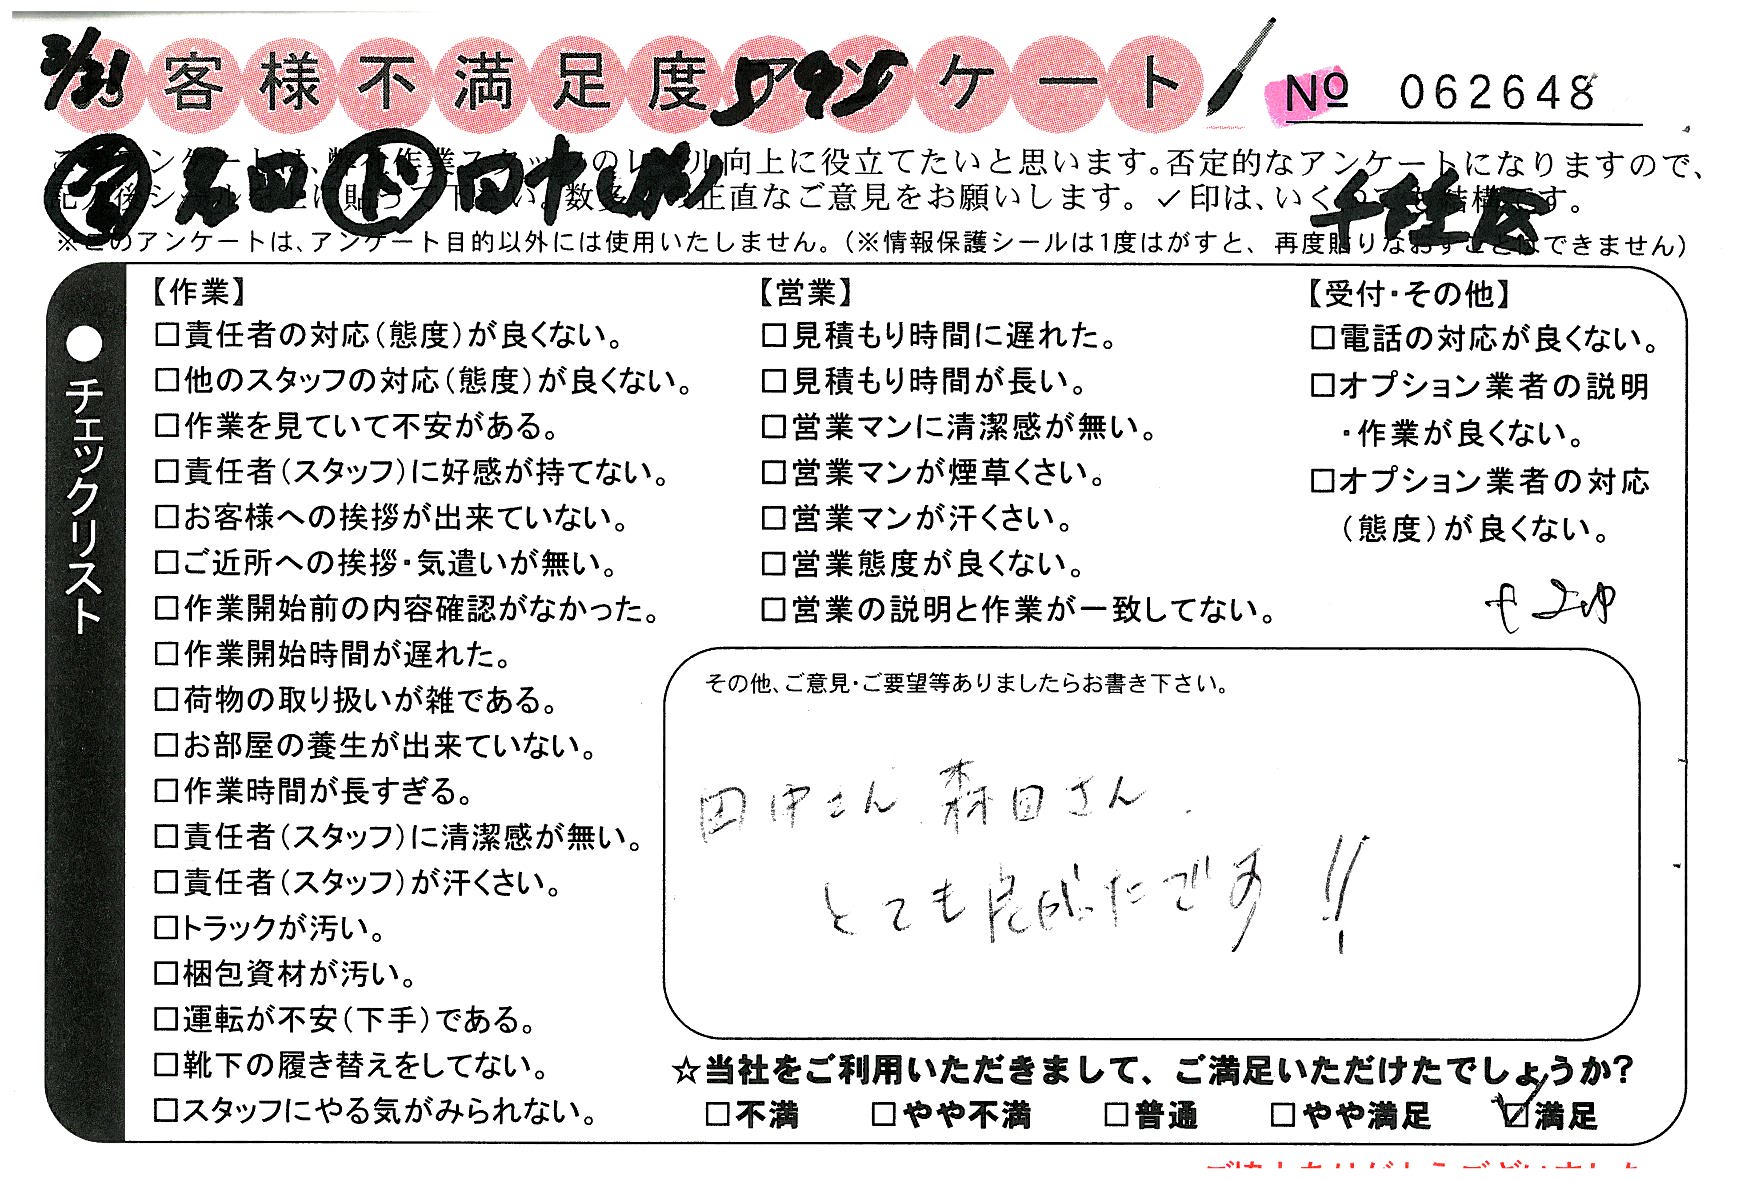 3/21 客様不満足度アンケート 595 № 062648
このアンケートは、弊社作業スタッフのレベル向上に役立てたいと思います。否定的なアンケートになりますので、
記入後シールを上に貼って下さい。数多くの正直なご意見をお願いします。✓印は、いくつでも結構です。
※このアンケートは、アンケート目的以外には使用いたしません。(※情報保護シールは1度はがすと、再度貼りなおすことはできません)
●チェックリスト
【作業】
□責任者の対応(態度)が良くない。
□他のスタッフの対応(態度)が良くない。
□作業を見ていて不安がある。
□責任者(スタッフ)に好感が持てない。
□お客様への挨拶が出来ていない。
□ご近所への挨拶・気遣いが無い。
□作業開始前の内容確認がなかった。
□作業開始時間が遅れた。
□荷物の取り扱いが雑である。
□お部屋の養生が出来ていない。
□作業時間が長すぎる。
□責任者(スタッフ)に清潔感が無い。
□責任者(スタッフ)が汗くさい。
□トラックが汚い。
□梱包資材が汚い。
□運転が不安(下手)である。
□靴下の履き替えをしてない。
□スタッフにやる気がみられない。
【営業】
□見積もり時間に遅れた。
□見積もり時間が長い。
□営業マンに清潔感が無い。
□営業マンが煙草くさい。
□営業マンが汗くさい。
□営業態度が良くない。
□営業の説明と作業が一致してない。
【受付・その他】
□電話の対応が良くない。
□オプション業者の説明
・作業が良くない。
□オプション業者の対応
(態度)が良くない。
その他、ご意見・ご要望等ありましたらお書き下さい。
田中さん 森田さん
とても良かったです!!
☆当社をご利用いただきまして、ご満足いただけたでしょうか?
□不満 □やや不満 □普通 □やや満足 ☑満足